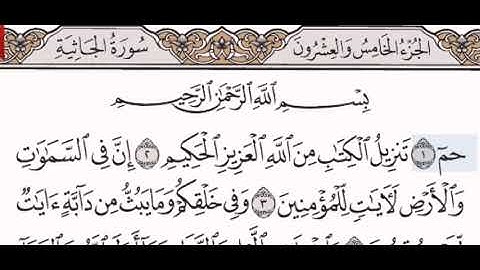 الجُزْءُ الخَامِسُ وَالعِشْرُونَ
سُورَةُ الجَاثِيَةِ
بِسْمِ اللَّهِ الرَّحْمَٰنِ الرَّحِيمِ
حمٓ ١ تَنزِيلُ الْكِتَابِ مِنَ اللَّهِ الْعَزِيزِ الْحَكِيمِ ٢ إِنَّ فِي السَّمَٰوَٰتِ
وَالْأَرْضِ لَآيَٰتٍ لِّلْمُؤْمِنِينَ ٣ وَفِي خَلْقِكُمْ وَمَا يَبُثُّ مِن دَآبَّةٍ ءَايَٰتٌ